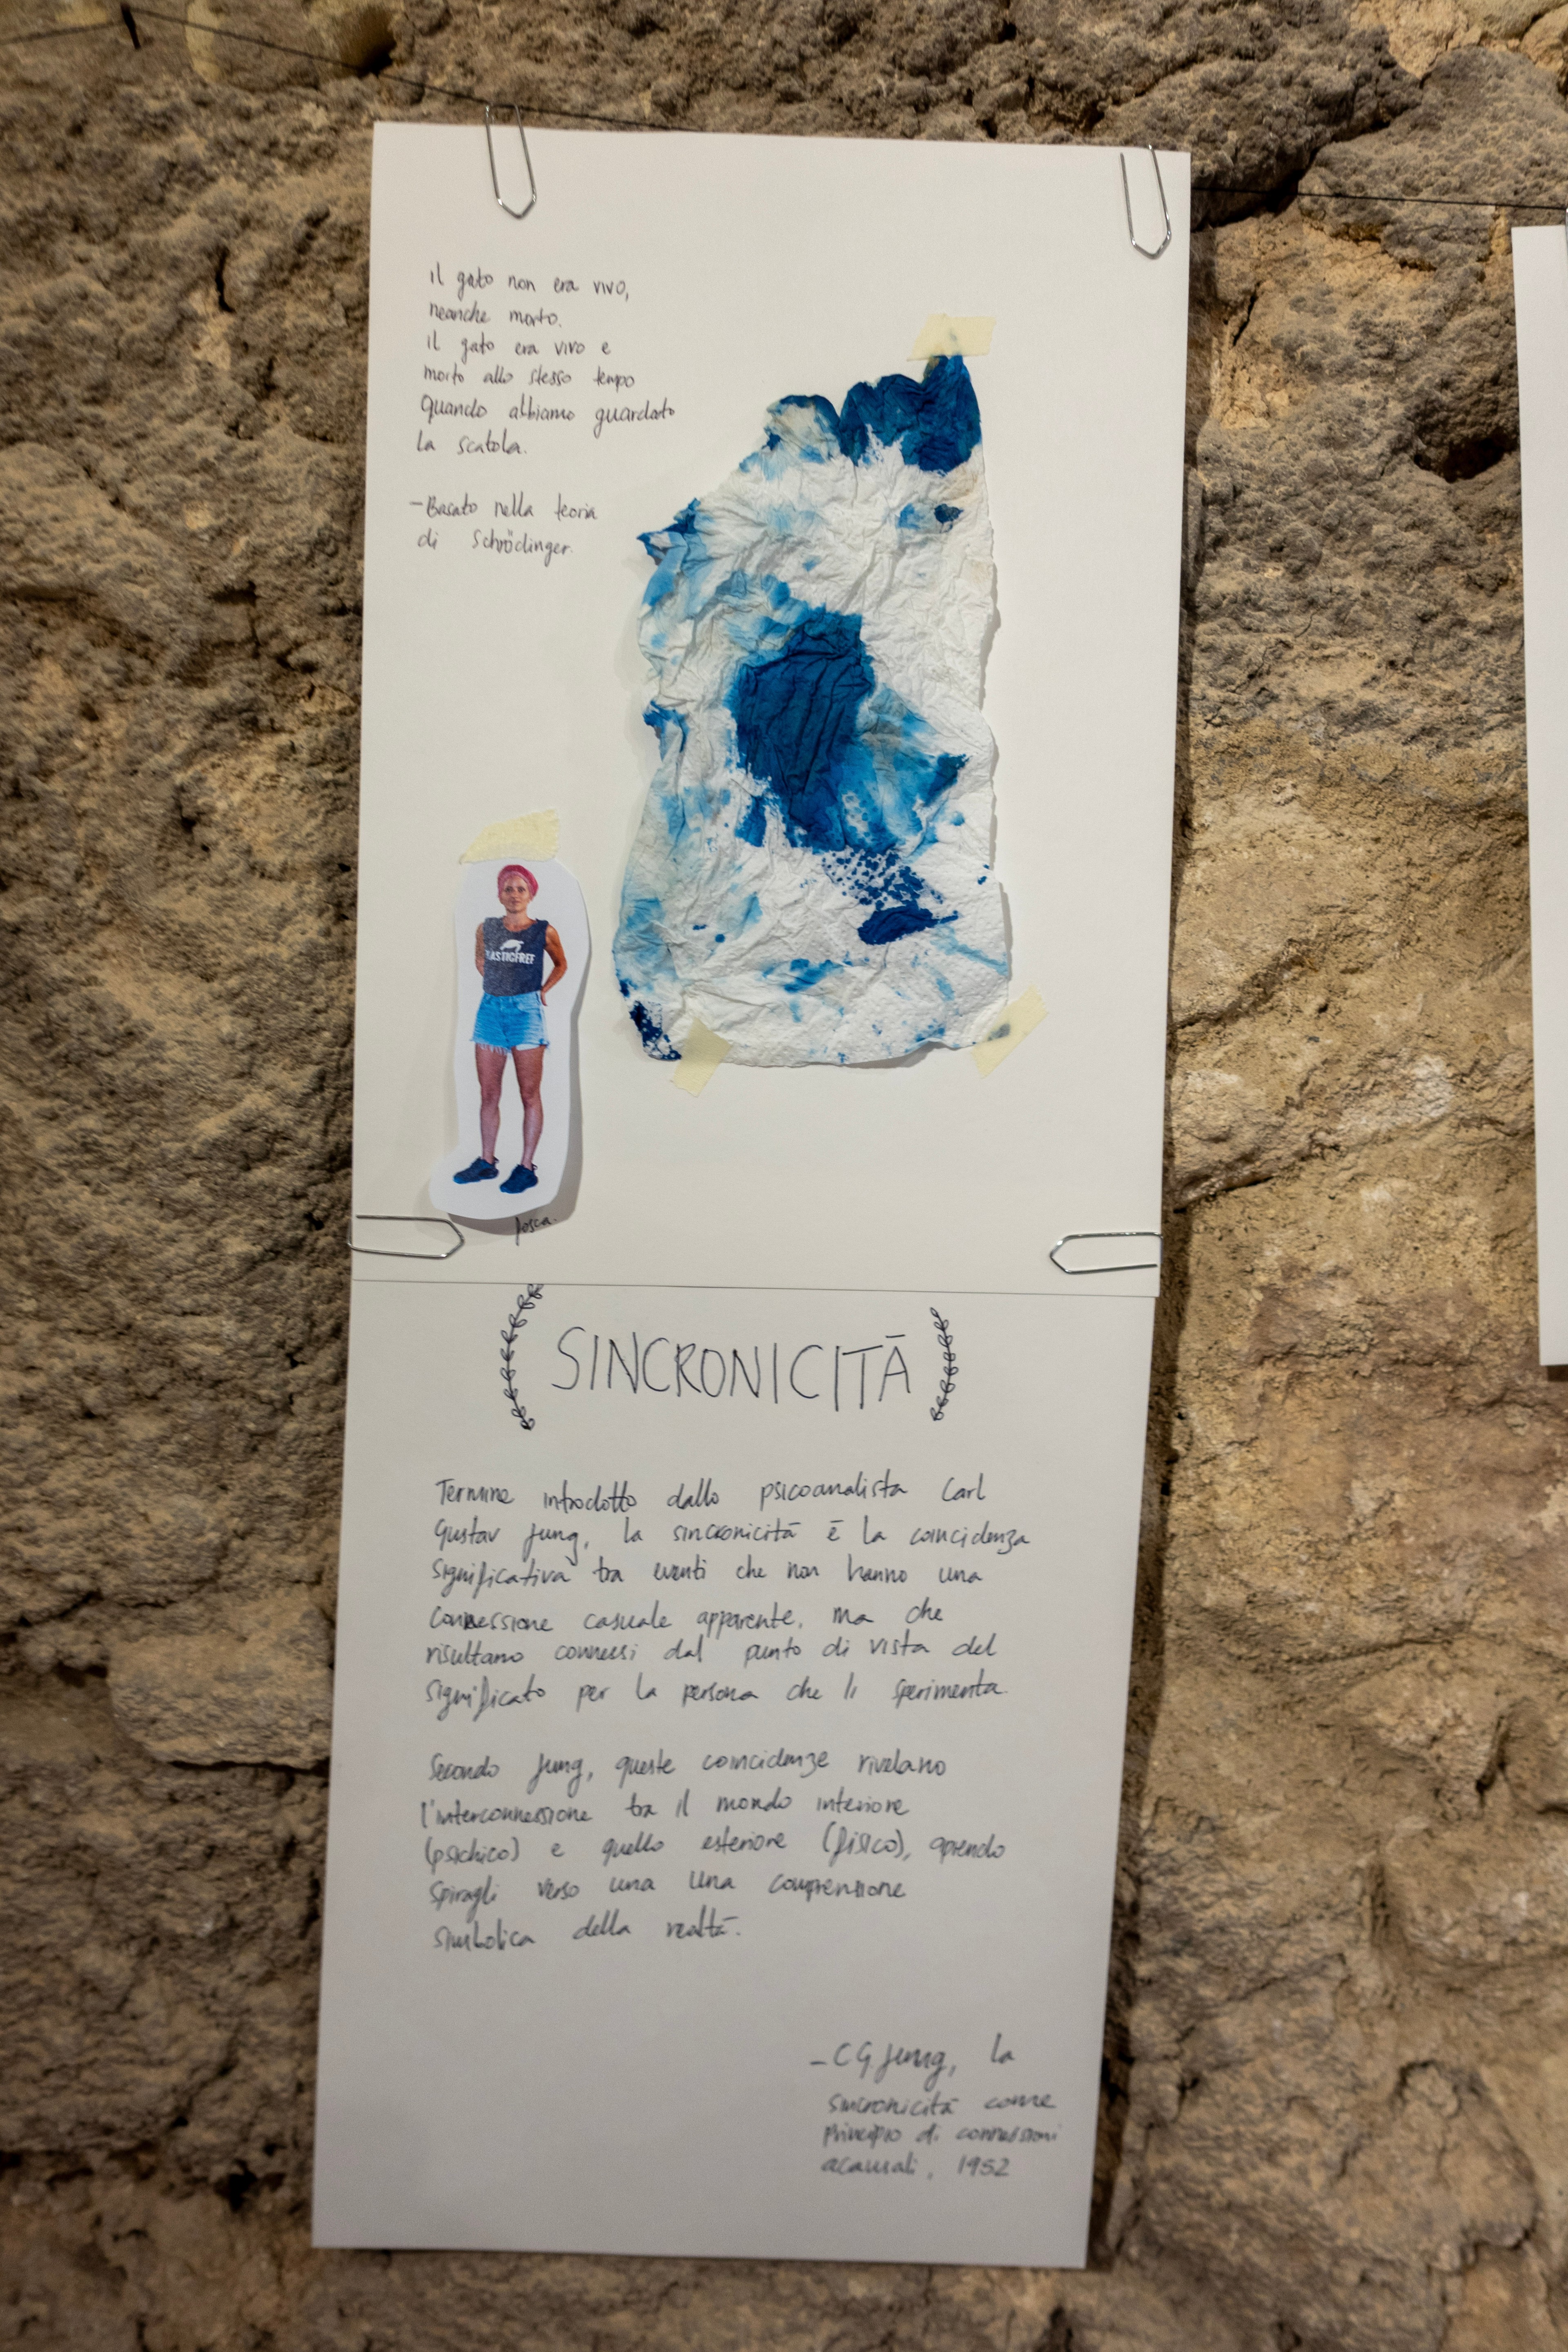 il gato non era vivo,
neanche morto.
il gato era vivo e
morto allo stesso tempo
quando abbiamo guardato
la scatola.
-Basato nella teoria
di Schrödinger.
LASTICFREE
Posca.
SINCRONICITÀ
Termine introdotto dallo psicoanalista Carl
Gustav Jung, la sincronicità è la coincidenza
significativa tra eventi che non hanno una
connessione casuale apparente, ma che
risultano connessi dal punto di vista del
significato per la persona che li sperimenta.
Secondo Jung, queste coincidenze rivelano
l'interconnessione tra il mondo interiore
(psichico) e quello esteriore (fisico), aprendo
spiragli verso una una comprensione
simbolica della realtà.
- CG Jung, la
sincronicità come
principio di connessioni
acausali, 1952